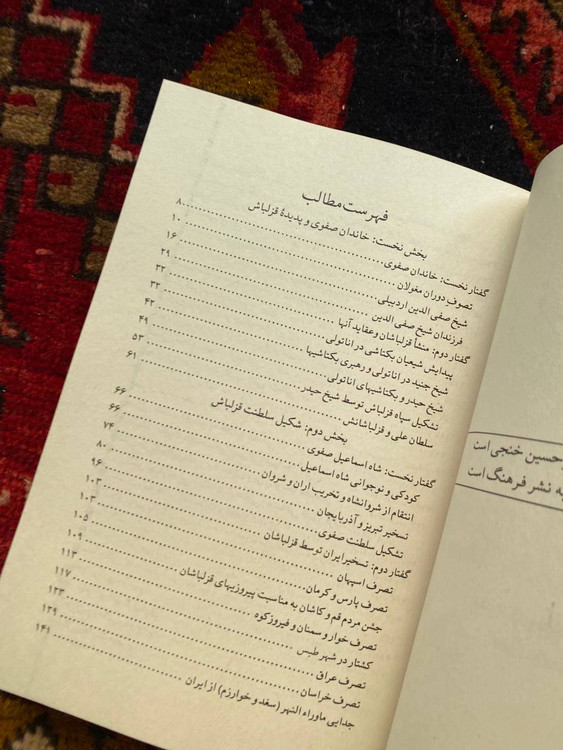 فهرست مطالب
بخش نخست: خاندان صفوی و پدیدۀ قزلباش
گفتار نخست: خاندان صفوی ........ ۸
تصوف دوران مغولان ........ ۱۰
شیخ صفی الدین اردبیلی ........ ۱۶
فرزندان شیخ صفی الدین ........ ۲۹
گفتار دوم: منشأ قزلباشان و عقاید آنها ........ ۳۲
پیدایش شیعیان بکتاشی در اناتولی ........ ۳۲
شیخ جنید در اناتولی و رهبری بکتاشیها ........ ۴۲
شیخ حیدر و بکتاشیهای اناتولی ........ ۴۹
تشکیل سپاه قزلباش توسط شیخ حیدر ........ ۵۳
سلطان علی و قزلباشانش ........ ۶۱
بخش دوم: شکیل سلطنت قزلباش
گفتار نخست: شاه اسماعیل صفوی ........ ۶۶
کودکی و نوجوانی شاه اسماعیل ........ ۶۶
انتقام از شروانشاه و تخریب اران و شروان ........ ۷۴
تسخیر تبریز و آذربایجان ........ ۸۰
تشکیل سلطنت صفوی ........ ۹۶
گفتار دوم: تسخیر ایران توسط قزلباشان ........ ۱۰۳
تصرف اسپهان ........ ۱۰۳
تصرف پارس و کرمان ........ ۱۰۵
جشن مردم قم و کاشان به مناسبت پیروزیهای قزلباشان ........ ۱۰۹
تصرف خوار و سمنان و فیروزکوه ........ ۱۱۳
کشتار در شهر طبس ........ ۱۱۷
تصرف عراق ........ ۱۲۳
تصرف خراسان ........ ۱۳۹
جدایی ماوراء النهر (سغد و خوارزم) از ایران ........ ۱۴۱
حسین خنجی است
به نشر فرهنگ است